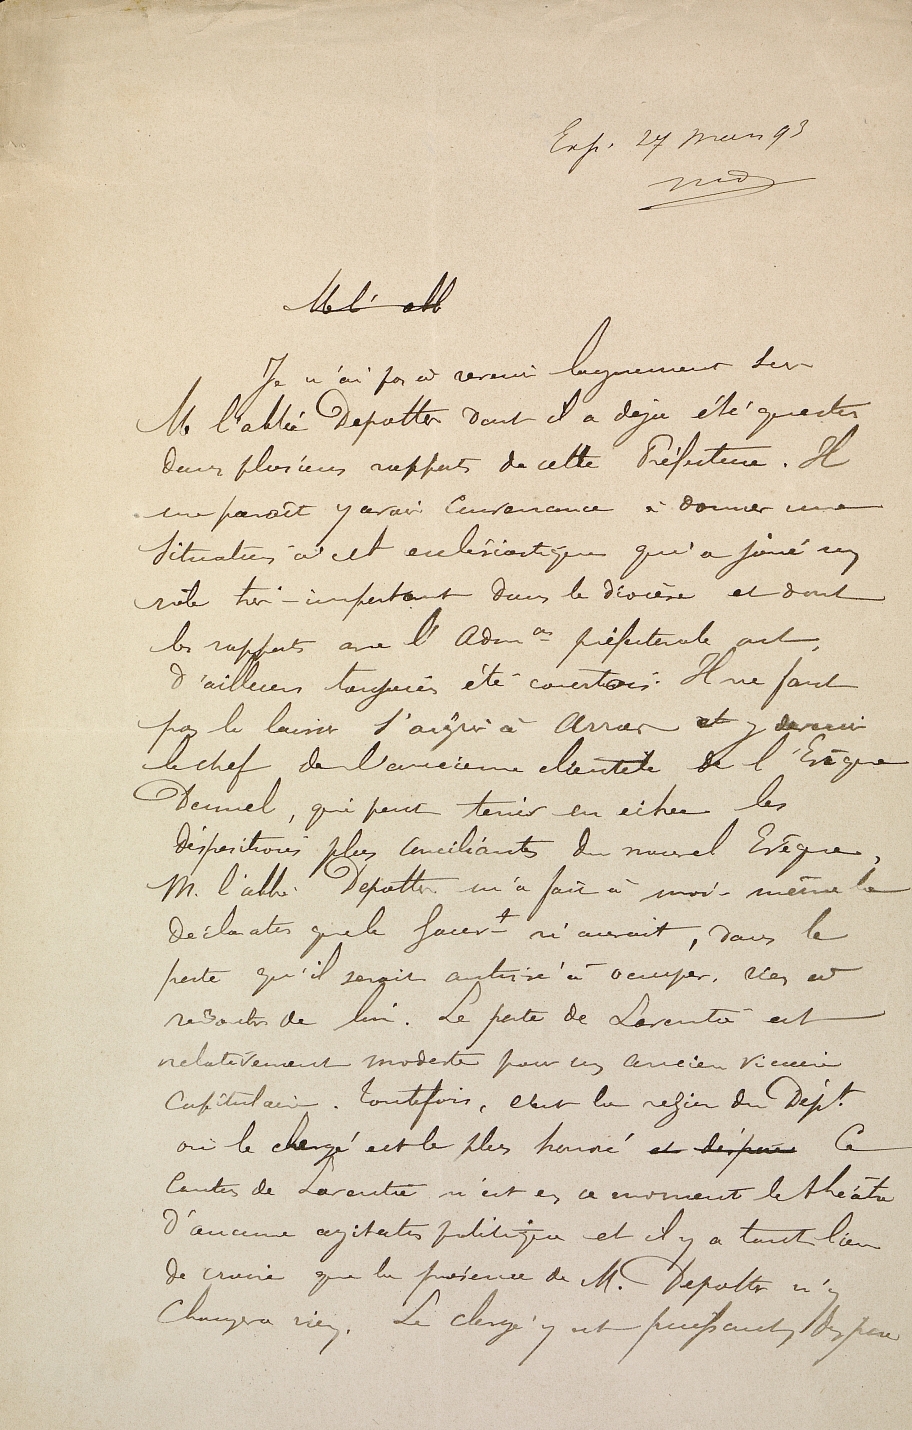 Exp. 27 Mars 93
M l' abb
Je n'ai pas à revenir longuement sur
M l'abbé Depotter dont il a déjà été question
dans plusieurs rapports de cette Préfecture. Il
me paraît y avoir convenance à donner une
situation à cet ecclésiastique qui a joué un
rôle très-important dans le diocèse et dont
les rapports avec l' Admon préfectorale ont,
d'ailleurs toujours été courtois. Il ne faut
pas le laisser s'aigrir à Arras et y devenir
le chef de l'ancienne clientèle de l'Evêque
Dennel, qui peut tenir en échec les
dispositions plus conciliantes du nouvel Evêque.
M. l'abbé Depotter m'a fait à moi-même la
déclaration que le Gouvt n'aurait, dans le
poste qu'il serait autorisé à occuper, rien à
redouter de lui. Le poste de Laventie est
relativement modeste pour un ancien vicaire
capitulaire. Toutefois, c'est la région du Dépt
où le clergé est le plus honoré et Ce
Canton de Laventie n'est en ce moment le théâtre
d'aucune agitation politique et il y a tout lieu
de croire que la présence de M. Depotter n'y
changera rien. Le clergé y est puissant,